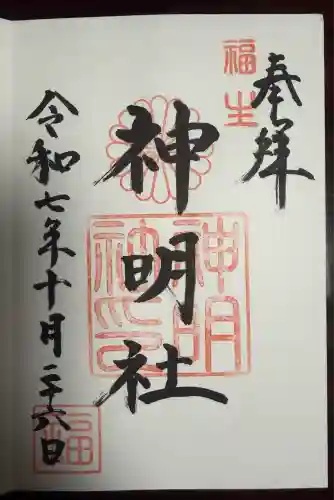 奉拝
福生
神明社
神明
社之
印
令和七年十月二十六日
福